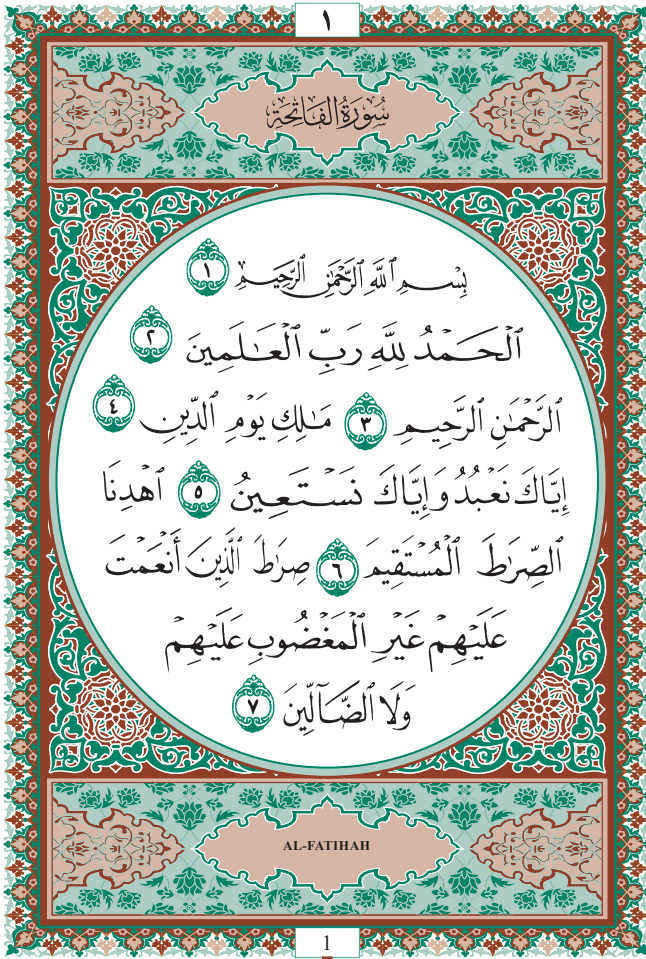 ١
سُورَةُ الفَاتِحَةِ
بِسْمِ ٱللَّهِ ٱلرَّحْمَٰنِ ٱلرَّحِيمِ ١
ٱلْحَمْدُ لِلَّهِ رَبِّ ٱلْعَٰلَمِينَ ٢
ٱلرَّحْمَٰنِ ٱلرَّحِيمِ ٣ مَٰلِكِ يَوْمِ ٱلدِّينِ ٤
إِيَّاكَ نَعْبُدُ وَإِيَّاكَ نَسْتَعِينُ ٥ ٱهْدِنَا
ٱلصِّرَٰطَ ٱلْمُسْتَقِيمَ ٦ صِرَٰطَ ٱلَّذِينَ أَنْعَمْتَ
عَلَيْهِمْ غَيْرِ ٱلْمَغْضُوبِ عَلَيْهِمْ
وَلَا ٱلضَّآلِّينَ ٧
AL-FATIHAH
1